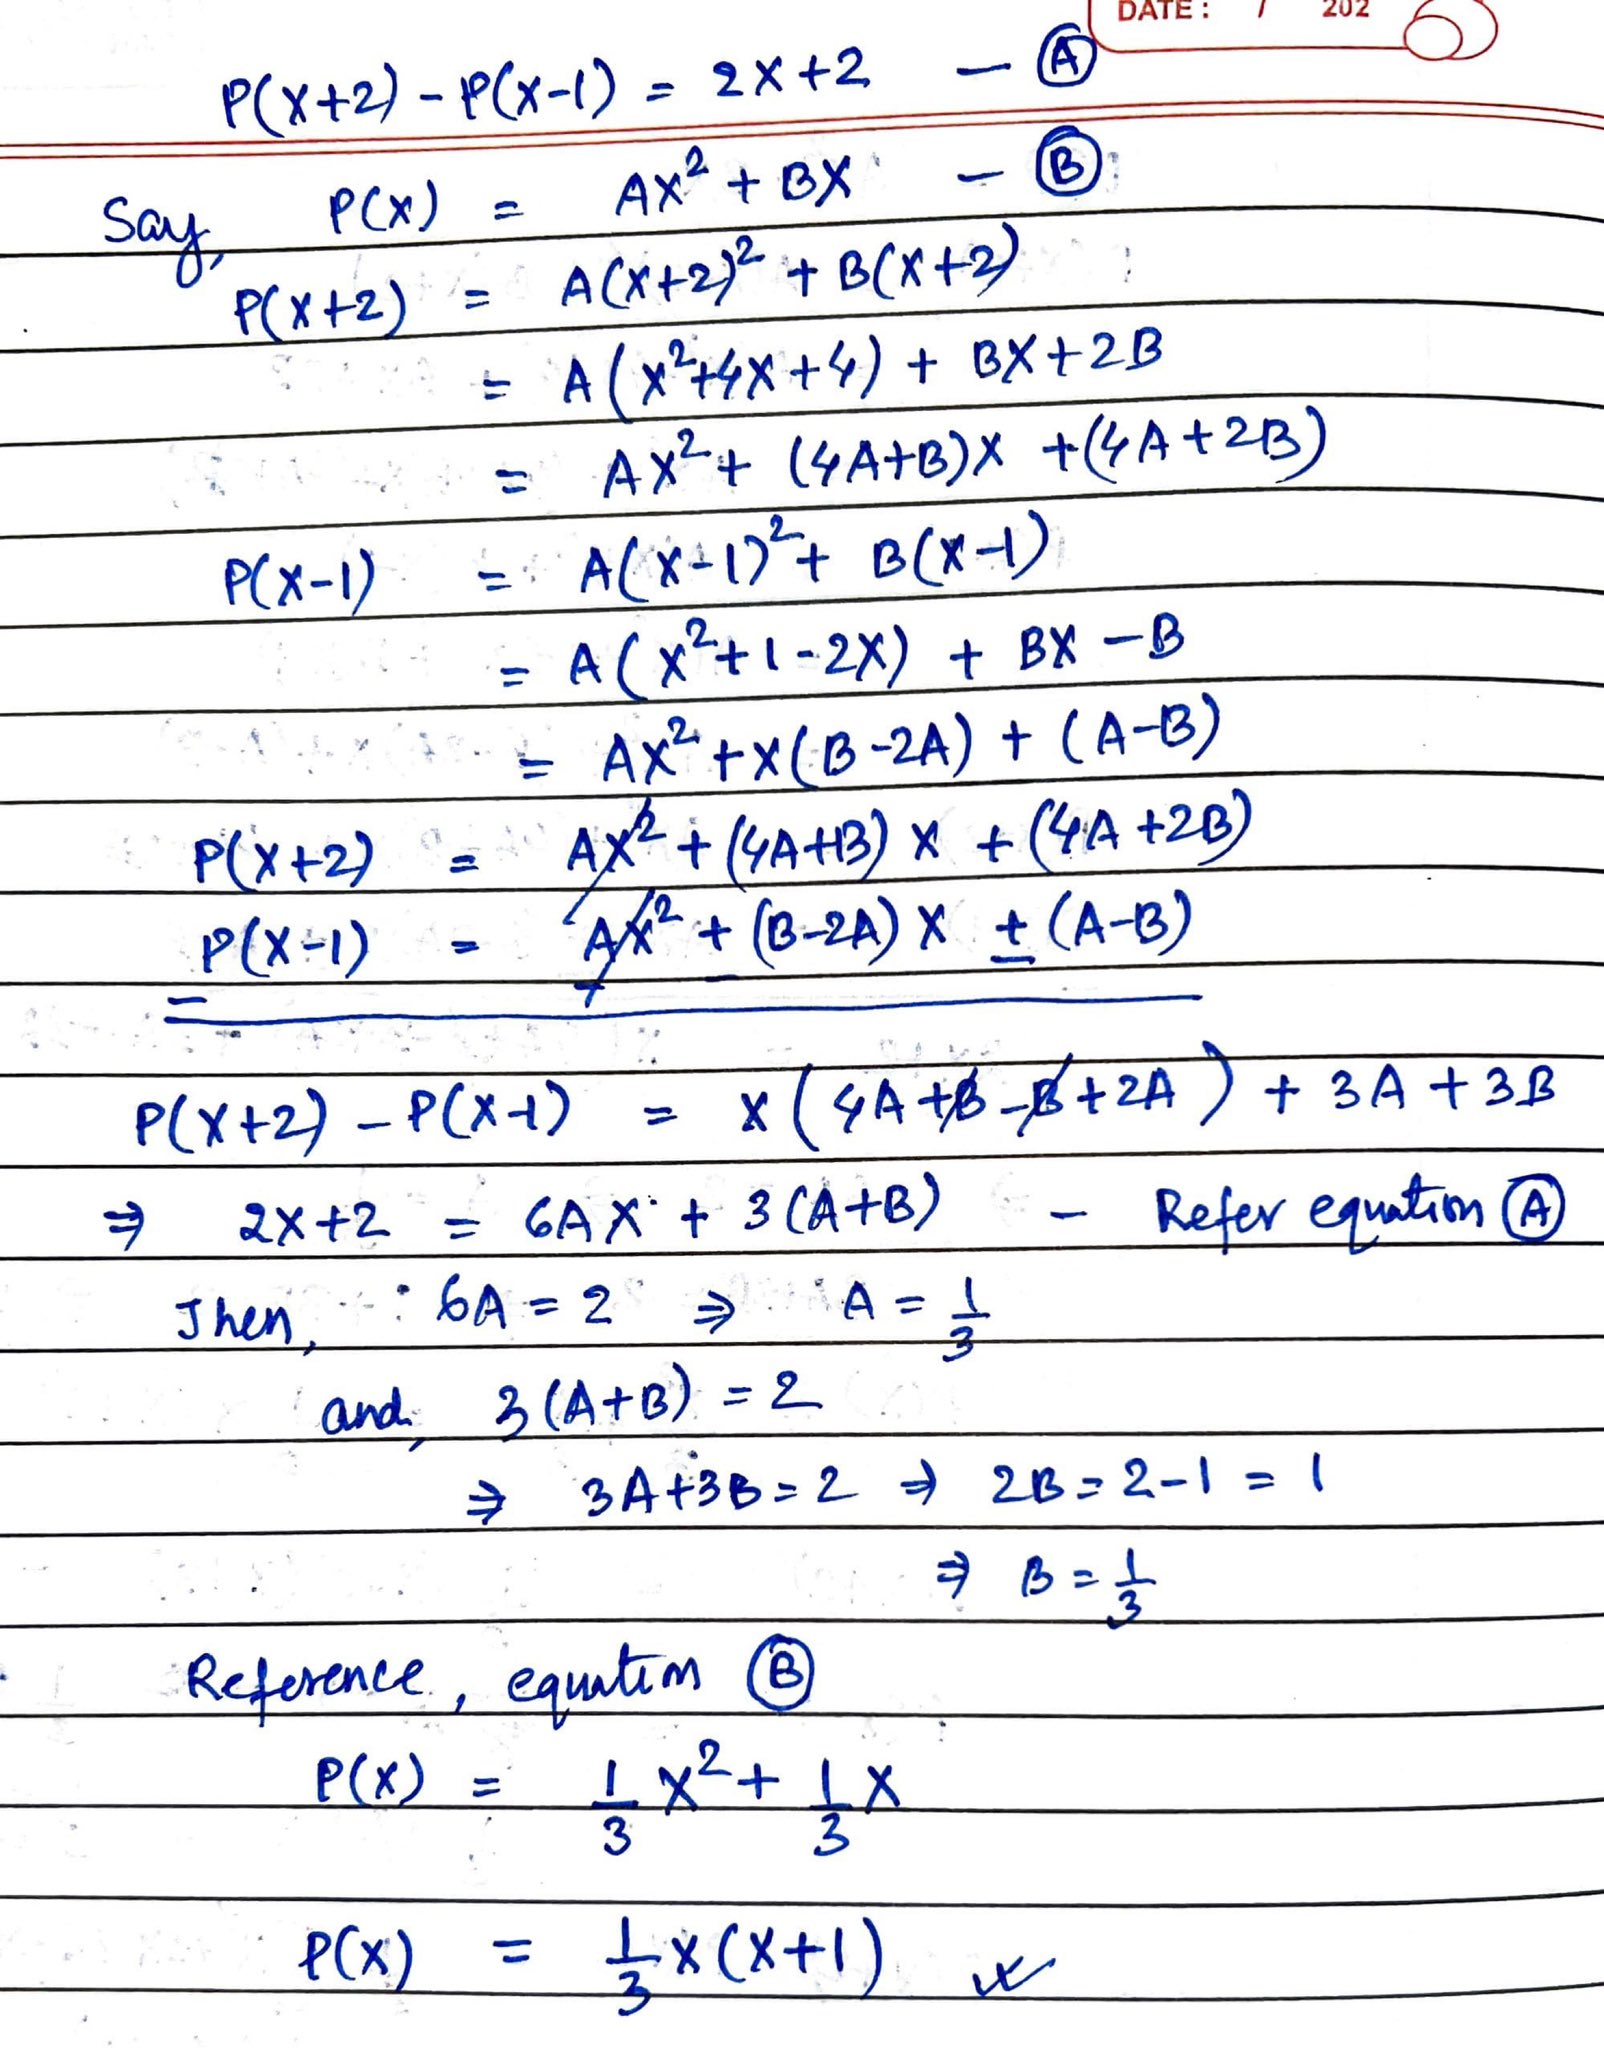 DATE: / 202
P(X+2) - P(X-1) = 2X+2 — Ⓐ
Say, P(X) = AX² + BX — Ⓑ
P(X+2) = A(X+2)² + B(X+2)
= A(X²+4X+4) + BX+2B
= AX² + (4A+B)X + (4A+2B)
P(X-1) = A(X-1)² + B(X-1)
= A(X²+1-2X) + BX - B
= AX² + X(B-2A) + (A-B)
P(X+2) = AX² + (4A+B) X + (4A+2B)
P(X-1) = AX² + (B-2A) X + (A-B)
P(X+2) - P(X-1) = X(4A+B-B+2A) + 3A + 3B
⇒ 2X+2 = 6AX + 3(A+B) - Refer equation Ⓐ
Then, 6A = 2 ⇒ A = 1/3
and, 3(A+B) = 2
⇒ 3A+3B = 2 ⇒ 2B = 2-1 = 1
⇒ B = 1/3
Reference, equation Ⓑ
P(X) = 1/3 X² + 1/3 X
P(X) = 1/3 X(X+1)